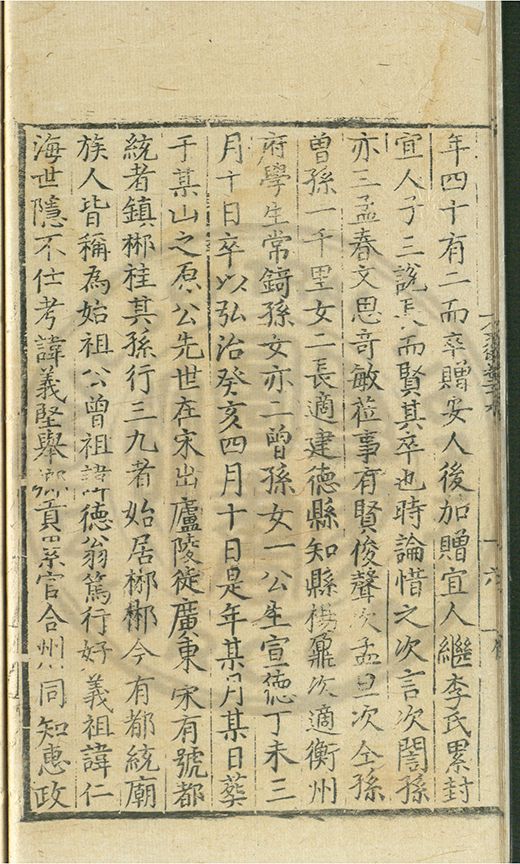 年四十有二而卒贈安人後加贈宜人繼李氏累封
宜人子三說長而賢其卒也時論惜之次言次誾孫
亦三孟春文思奇敏蒞事有賢俊聲次孟旦次仝孫
曾孫一千里女二長適建德縣知縣楊鼐次適衡州
府學生常錡孫女亦二曾孫女一公生宣德丁未三
月十日卒以弘治癸亥四月十日是年某月某日葬
于某山之原公先世在宋出廬陵徙廣東宋有號都
統者鎮郴桂其孫行三九者始居郴郴今有都統廟
族人皆稱為始祖公曾祖諱德翁篤行好義祖諱仁
海世隱不仕考諱義堅舉鄉貢累官合州同知惠政